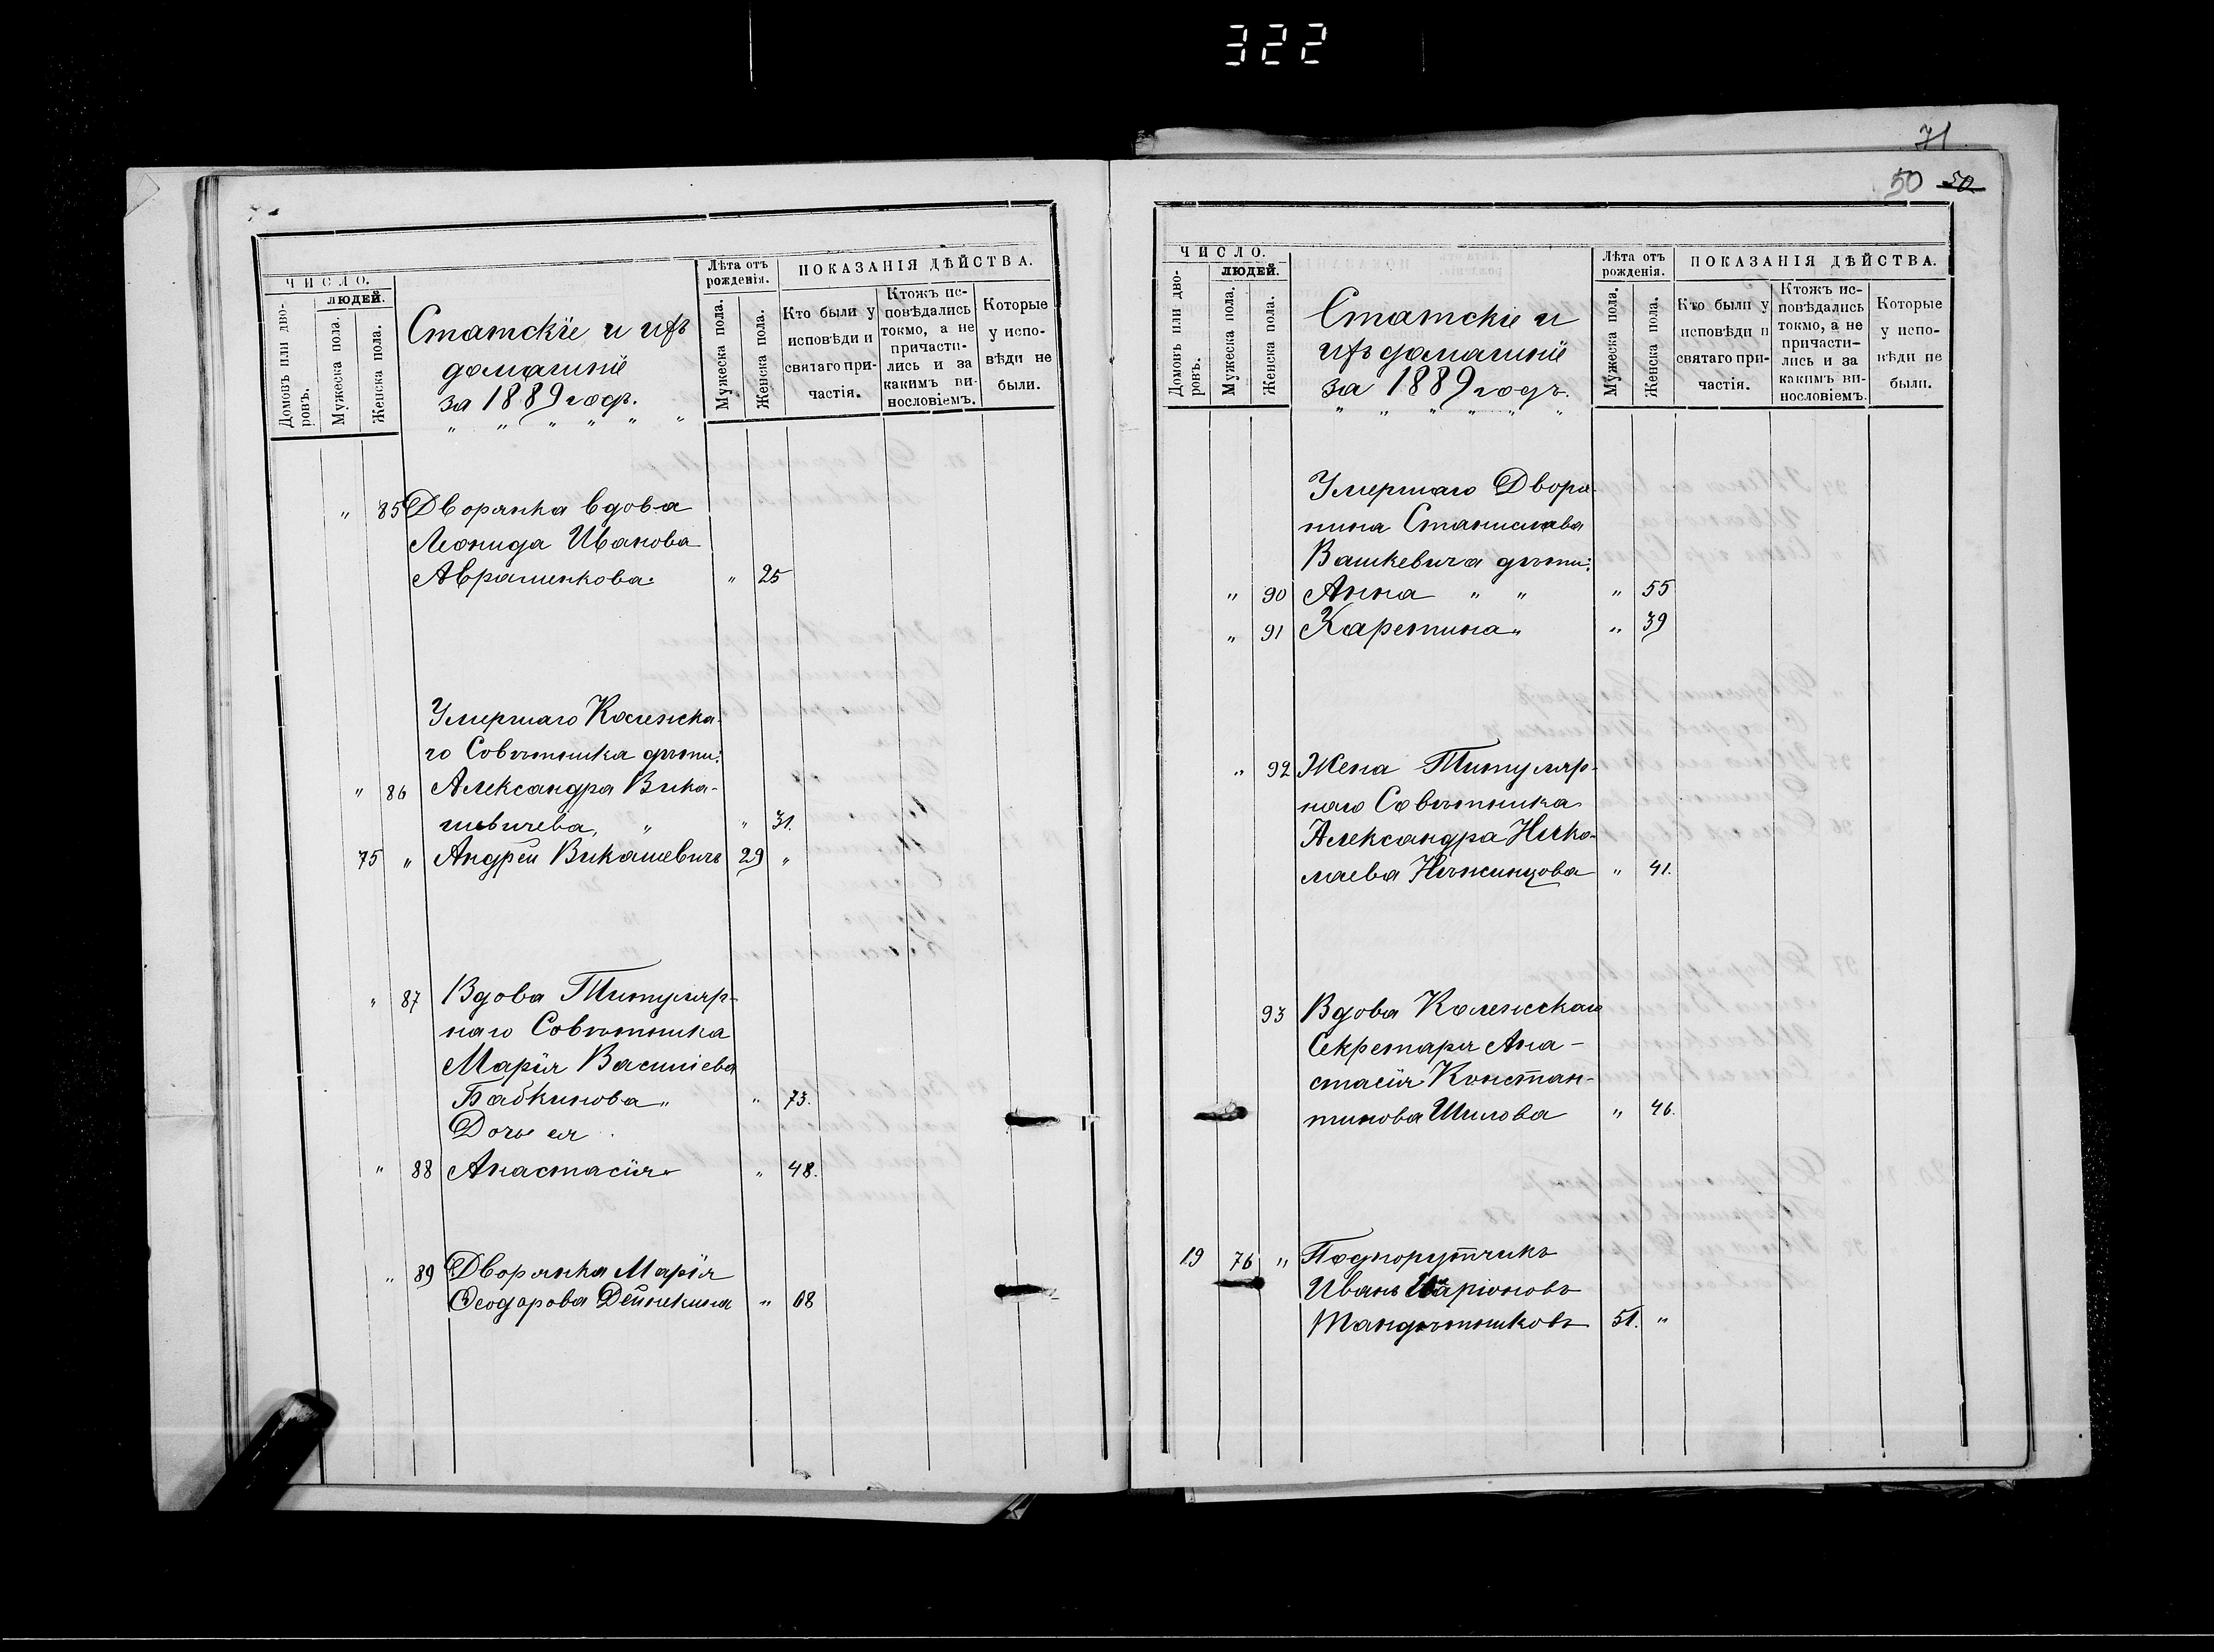 322
71
50 50
ЧИСЛО.
ЛЮДЕЙ.
Домовъ или дворовъ.
Мужеска пола.
Женска пола.
Статскіе и ихъ
домашніе
за 1889 годъ.
Лѣта отъ рожденія.
Мужеска пола.
Женска пола.
ПОКАЗАНІЯ ДѢЙСТВА.
Кто были у исповѣди и святаго причастія.
Ктожъ исповѣдались токмо, а не причастились и за какимъ винословіемъ.
Которые у исповѣди не были.
" 85 Дворянка вдова
Леонида Иванова
Авраменкова " 25
Умершаго Колежска-
го Совѣтника дѣти:
" 86 Александра Вика-
шевичева, " " 31.
75 " Андрей Викашевичъ 29 "
" 87 Вдова Титуляр-
наго Совѣтника
Марія Василіева
Бабкинова " " 73.
Дочь ея
" 88 Анастасія " 48.
" 89 Дворянка Марія
Ѳеодорова Дейнекина " 68
ЧИСЛО.
ЛЮДЕЙ.
Домовъ или дворовъ.
Мужеска пола.
Женска пола.
Статскіе и
ихъ домашніе
за 1889 годъ.
Лѣта отъ рожденія.
Мужеска пола.
Женска пола.
ПОКАЗАНІЯ ДѢЙСТВА.
Кто были у исповѣди и святаго причастія.
Ктожъ исповѣдались токмо, а не причастились и за какимъ винословіемъ.
Которые у исповѣди не были.
Умершаго Дворя-
нина Станислава
Вашкевича дѣти:
" 90 Анна " " " 55
" 91 Каретина " " 39
" 92 Жена Титуляр-
наго Совѣтника
Александра Нико-
лаева Нѣжинцова " 41.
93 Вдова Колежскаго
Секретаря Ана-
стасія Констан-
тинова Шилова " 46.
19 76 " Подпорутчикъ
Иванъ Иларіоновъ
Шандѣтниковъ 51. "